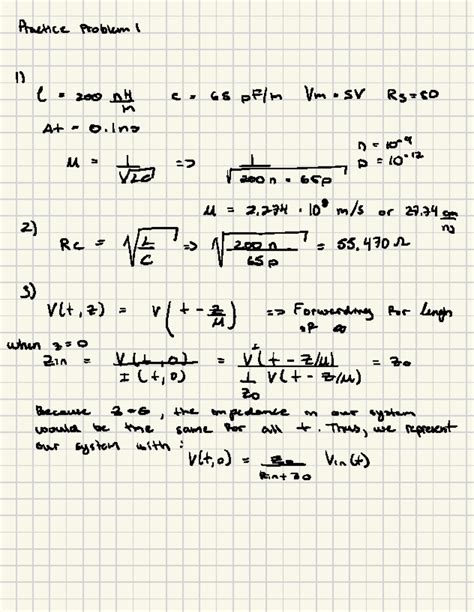 Practice Problem 1
1)
l = 200 nH/m    c = 65 pF/m    Vm = 5V    Rs = 50
Δt = 0.1ns
n = 10^-9
p = 10^-12
μ = 1/√LC => 1/√(200n · 65p)
μ = 2.774 · 10^8 m/s or 27.74 cm/ns
2)
Rc = √(L/C) => √(200n/65p) = 55.470 Ω
3)
V(t,z) = V(t - z/μ) => Forwarding for length of ∞
when z=0
Zin = V(t,0)/I(t,0) = V(t - z/μ)/(1/Z0 V(t - z/μ)) = Z0
Because z=0, the impedance in our system
would be the same for all t. Thus, we represent
our system with:
V(t,0) = Z0/(Rin+Z0) Vin(t)